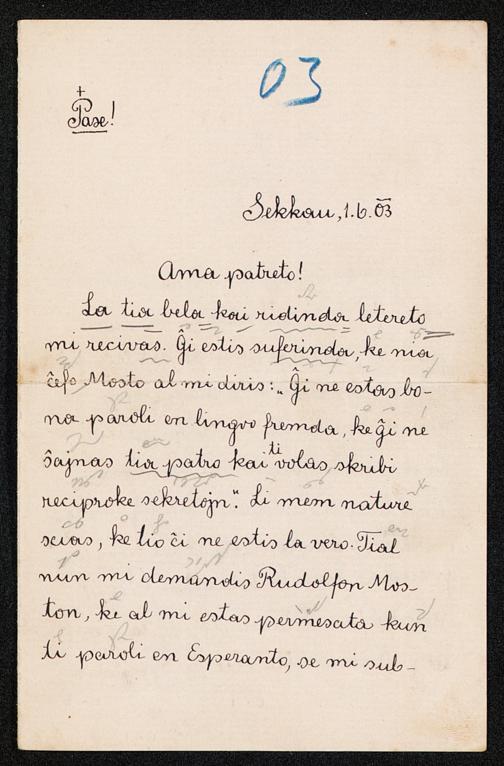 03
+
Paxe!
Sekkau, 1.6.03
Ama patreto!
La tia bela kai ridinda letereto
mi recivas. Ĝi estis suferinda, ke nia
ĉefo Mosto al mi diris: „Ĝi ne estas bo-
na paroli en lingvo fremda, ke ĝi ne
ŝajnas tia patro kai ti volas skribi
reciproke sekretojn". Li mem nature
scias, ke tio ĉi ne estis la vero. Tial
nun mi demandis Rudolfon Mos-
ton, ke al mi estas permesata kun
ti paroli en Esperanto, se mi sub-